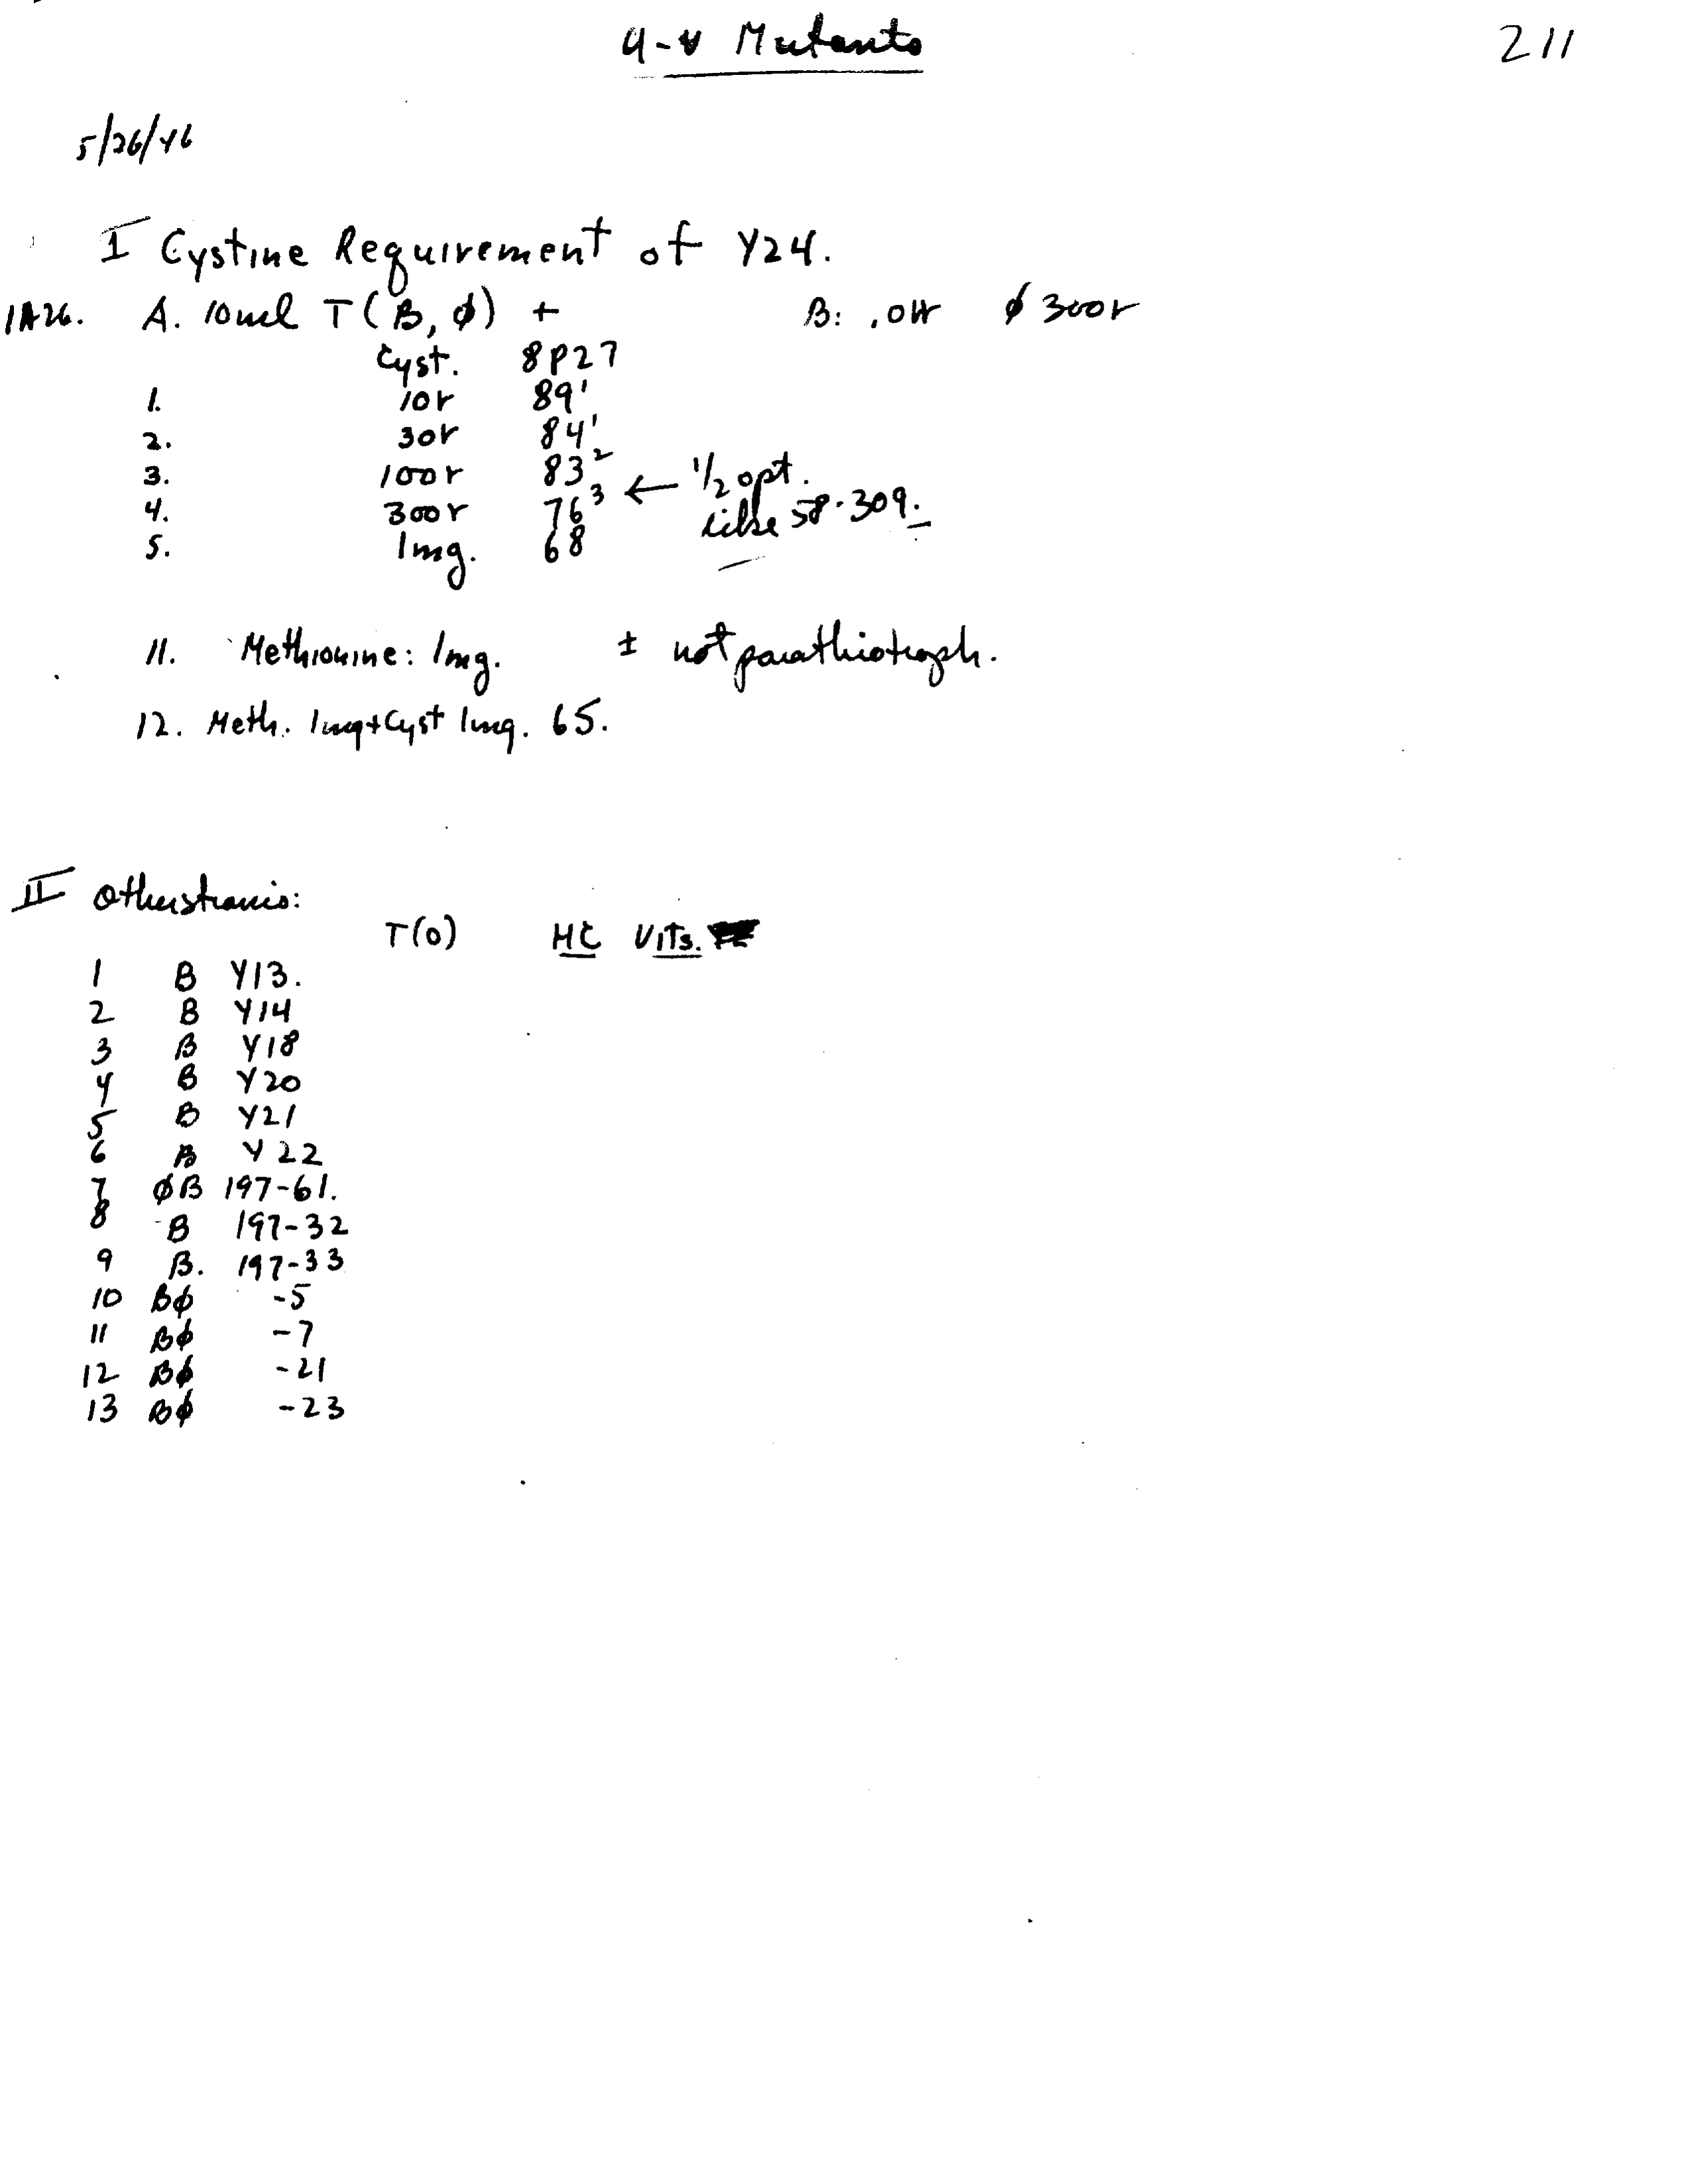 u-v Mutants 211
5/26/46
I Cystine Requirement of Y24.
1A26. A. 10ml T(B, φ) + B: .01γ φ 300γ
Cyst. 8P27
1. 10γ 89'
2. 30γ 84'
3. 100γ 83²
4. 300γ 76³ ← 1/2 opt.
like 58-309.
5. 1mg. 68
11. Methionine: 1mg. ± not parathiotroph.
12. Meth. 1mg+Cyst 1mg. 65.
II Other strains:
T(0) HC Vits.
1 B Y13.
2 B Y14
3 B Y18
4 B Y20
5 B Y21
6 B Y22
7 φB 197-61.
8 B 197-32
9 B. 197-33
10 Bφ -5
11 Bφ -7
12 Bφ -21
13 Bφ -23